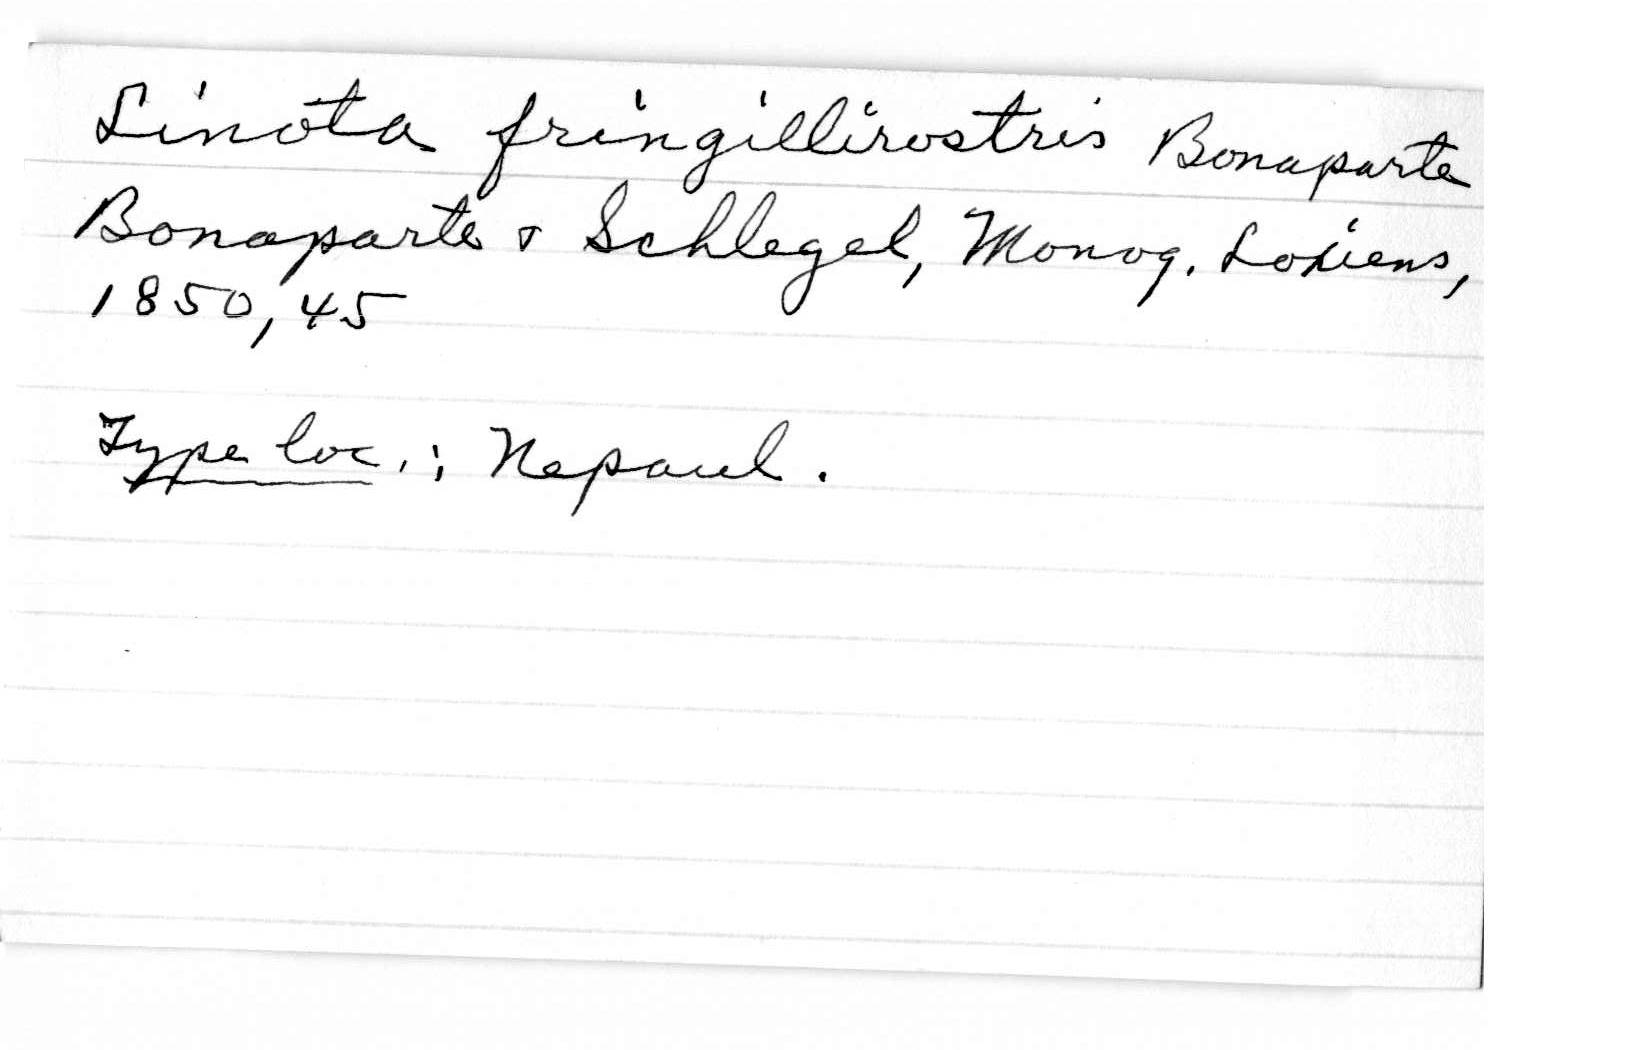 Linota fringillirostris Bonaparte
Bonaparte & Schlegel, Monog. Loxiens,
1850, 45
Type loc.: Nepaul.